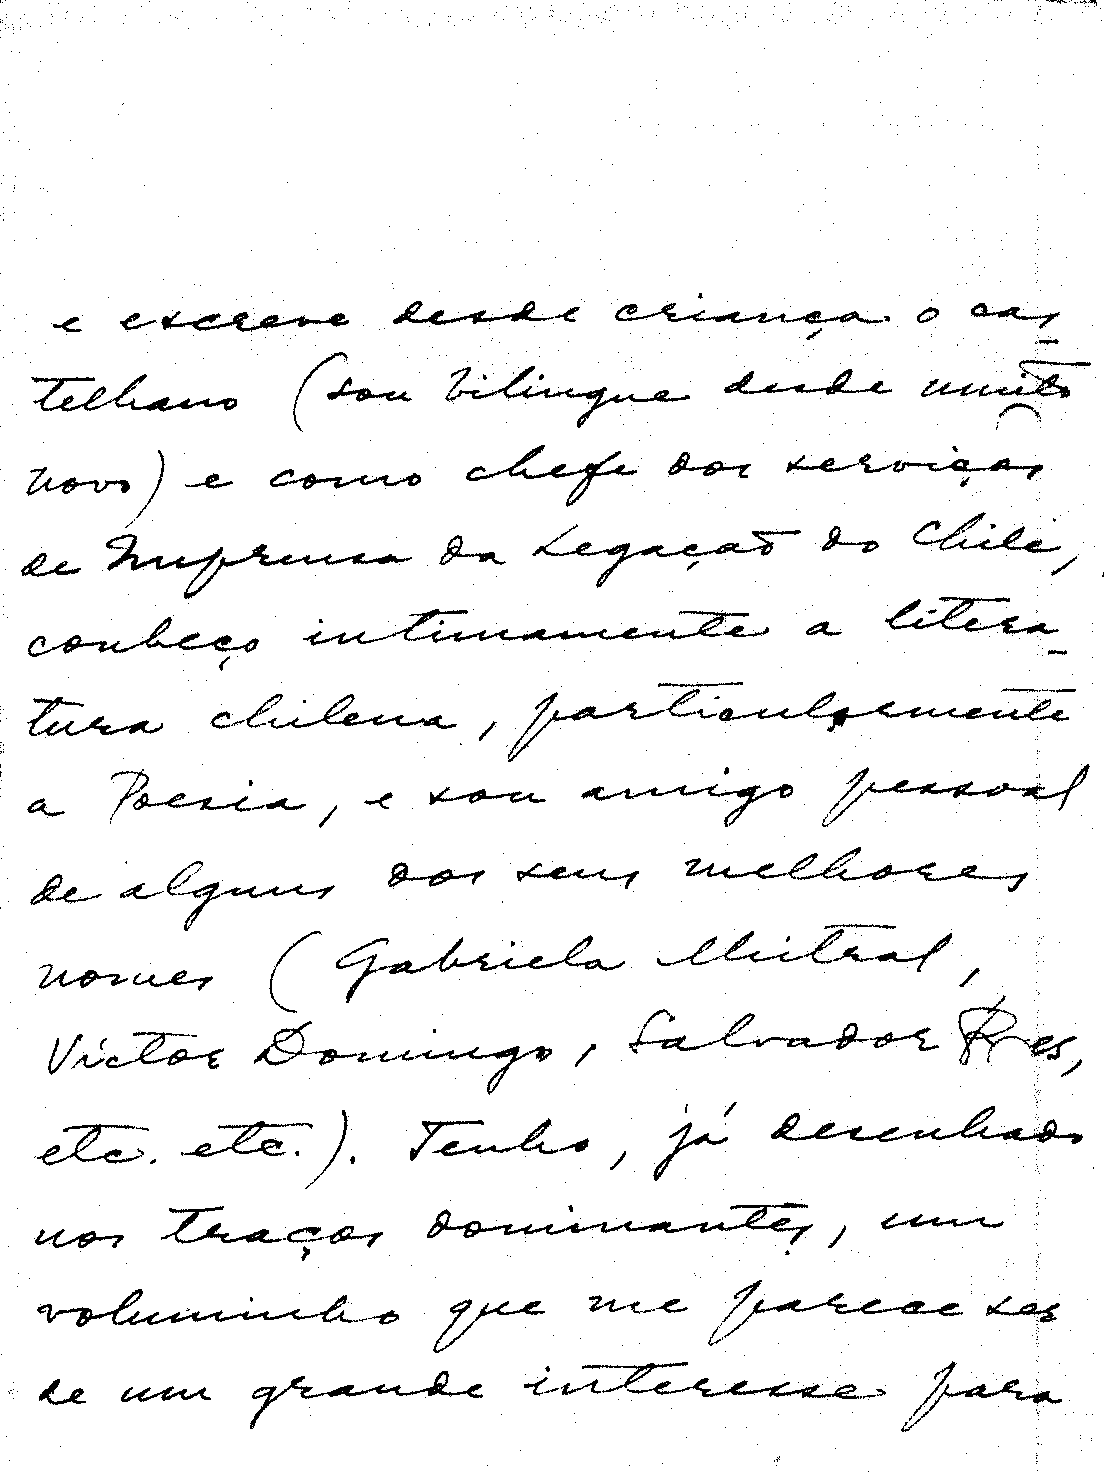 e escreve desde criança o cas-
telhano (sou bilingue desde muito
novo) e como chefe dos serviços
de Imprensa da Legação do Chile,
conheço intimamente a litera-
tura chilena, particularmente
a Poesia, e sou amigo pessoal
de alguns dos seus melhores
nomes (Gabriela Mistral,
Víctor Domingo, Salvador Reyes,
etc. etc.). Tenho, já desenhado
nos traços dominantes, um
voluminho que me parece ser
de um grande interesse para